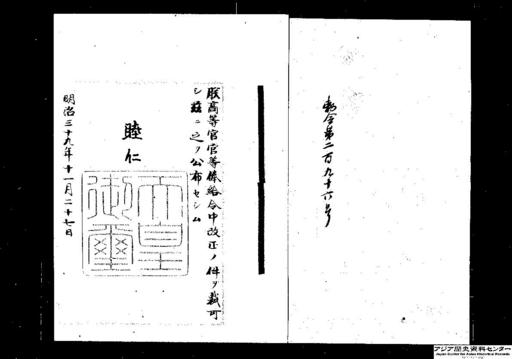 勅令第二百九十六号
朕高等官官等俸給令中改正ノ件ヲ裁可
シ茲ニ之ヲ公布セシム
睦仁
天皇御璽
明治三十九年十一月二十七日
アジア歴史資料センター
Japan Center for Asian Historical Records